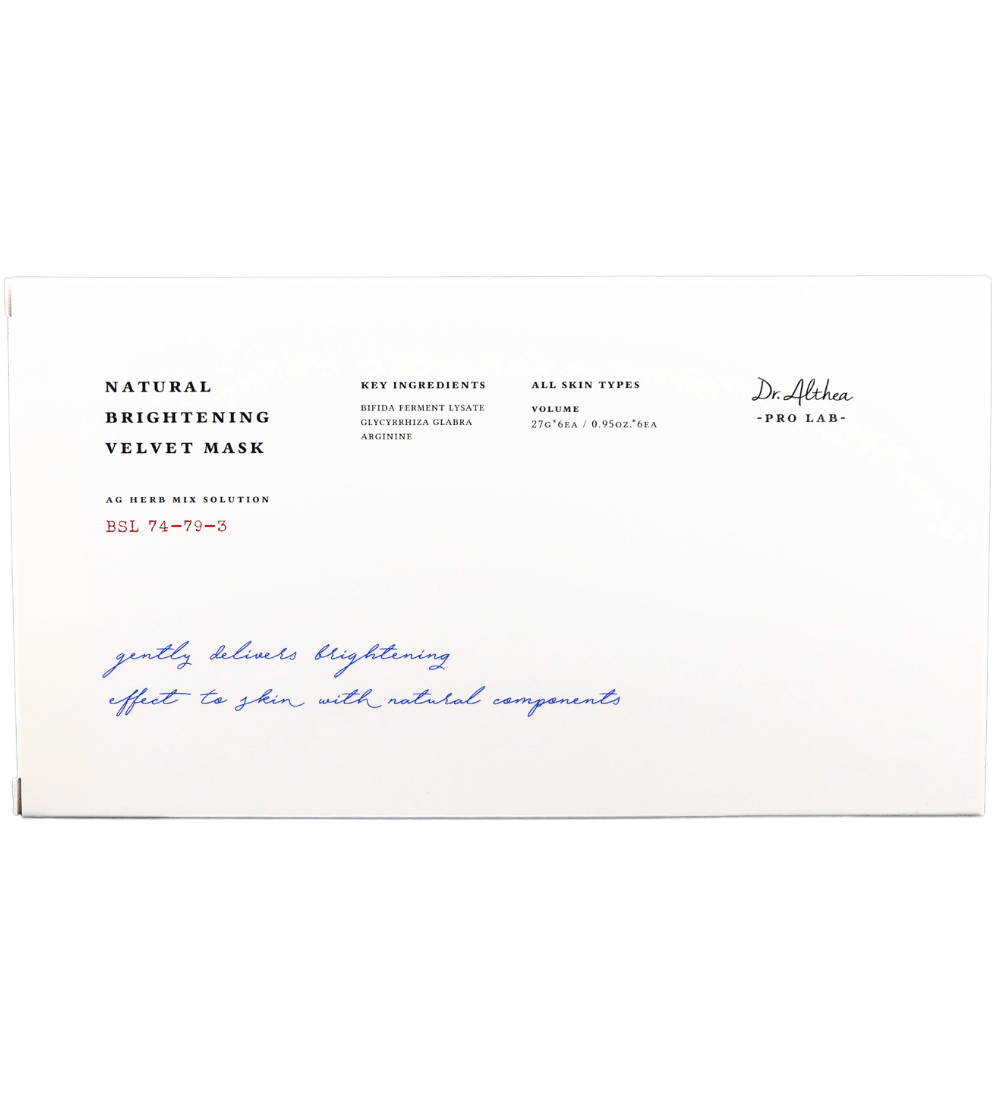 NATURAL
BRIGHTENING
VELVET MASK
AG HERB MIX SOLUTION
BSL 74-79-3
KEY INGREDIENTS
BIFIDA FERMENT LYSATE
GLYCYRRHIZA GLABRA
ARGININE
ALL SKIN TYPES
VOLUME
27G*6EA / 0.95OZ.*6EA
Dr. Althea
-PRO LAB-
gently delivers brightening
effect to skin with natural components